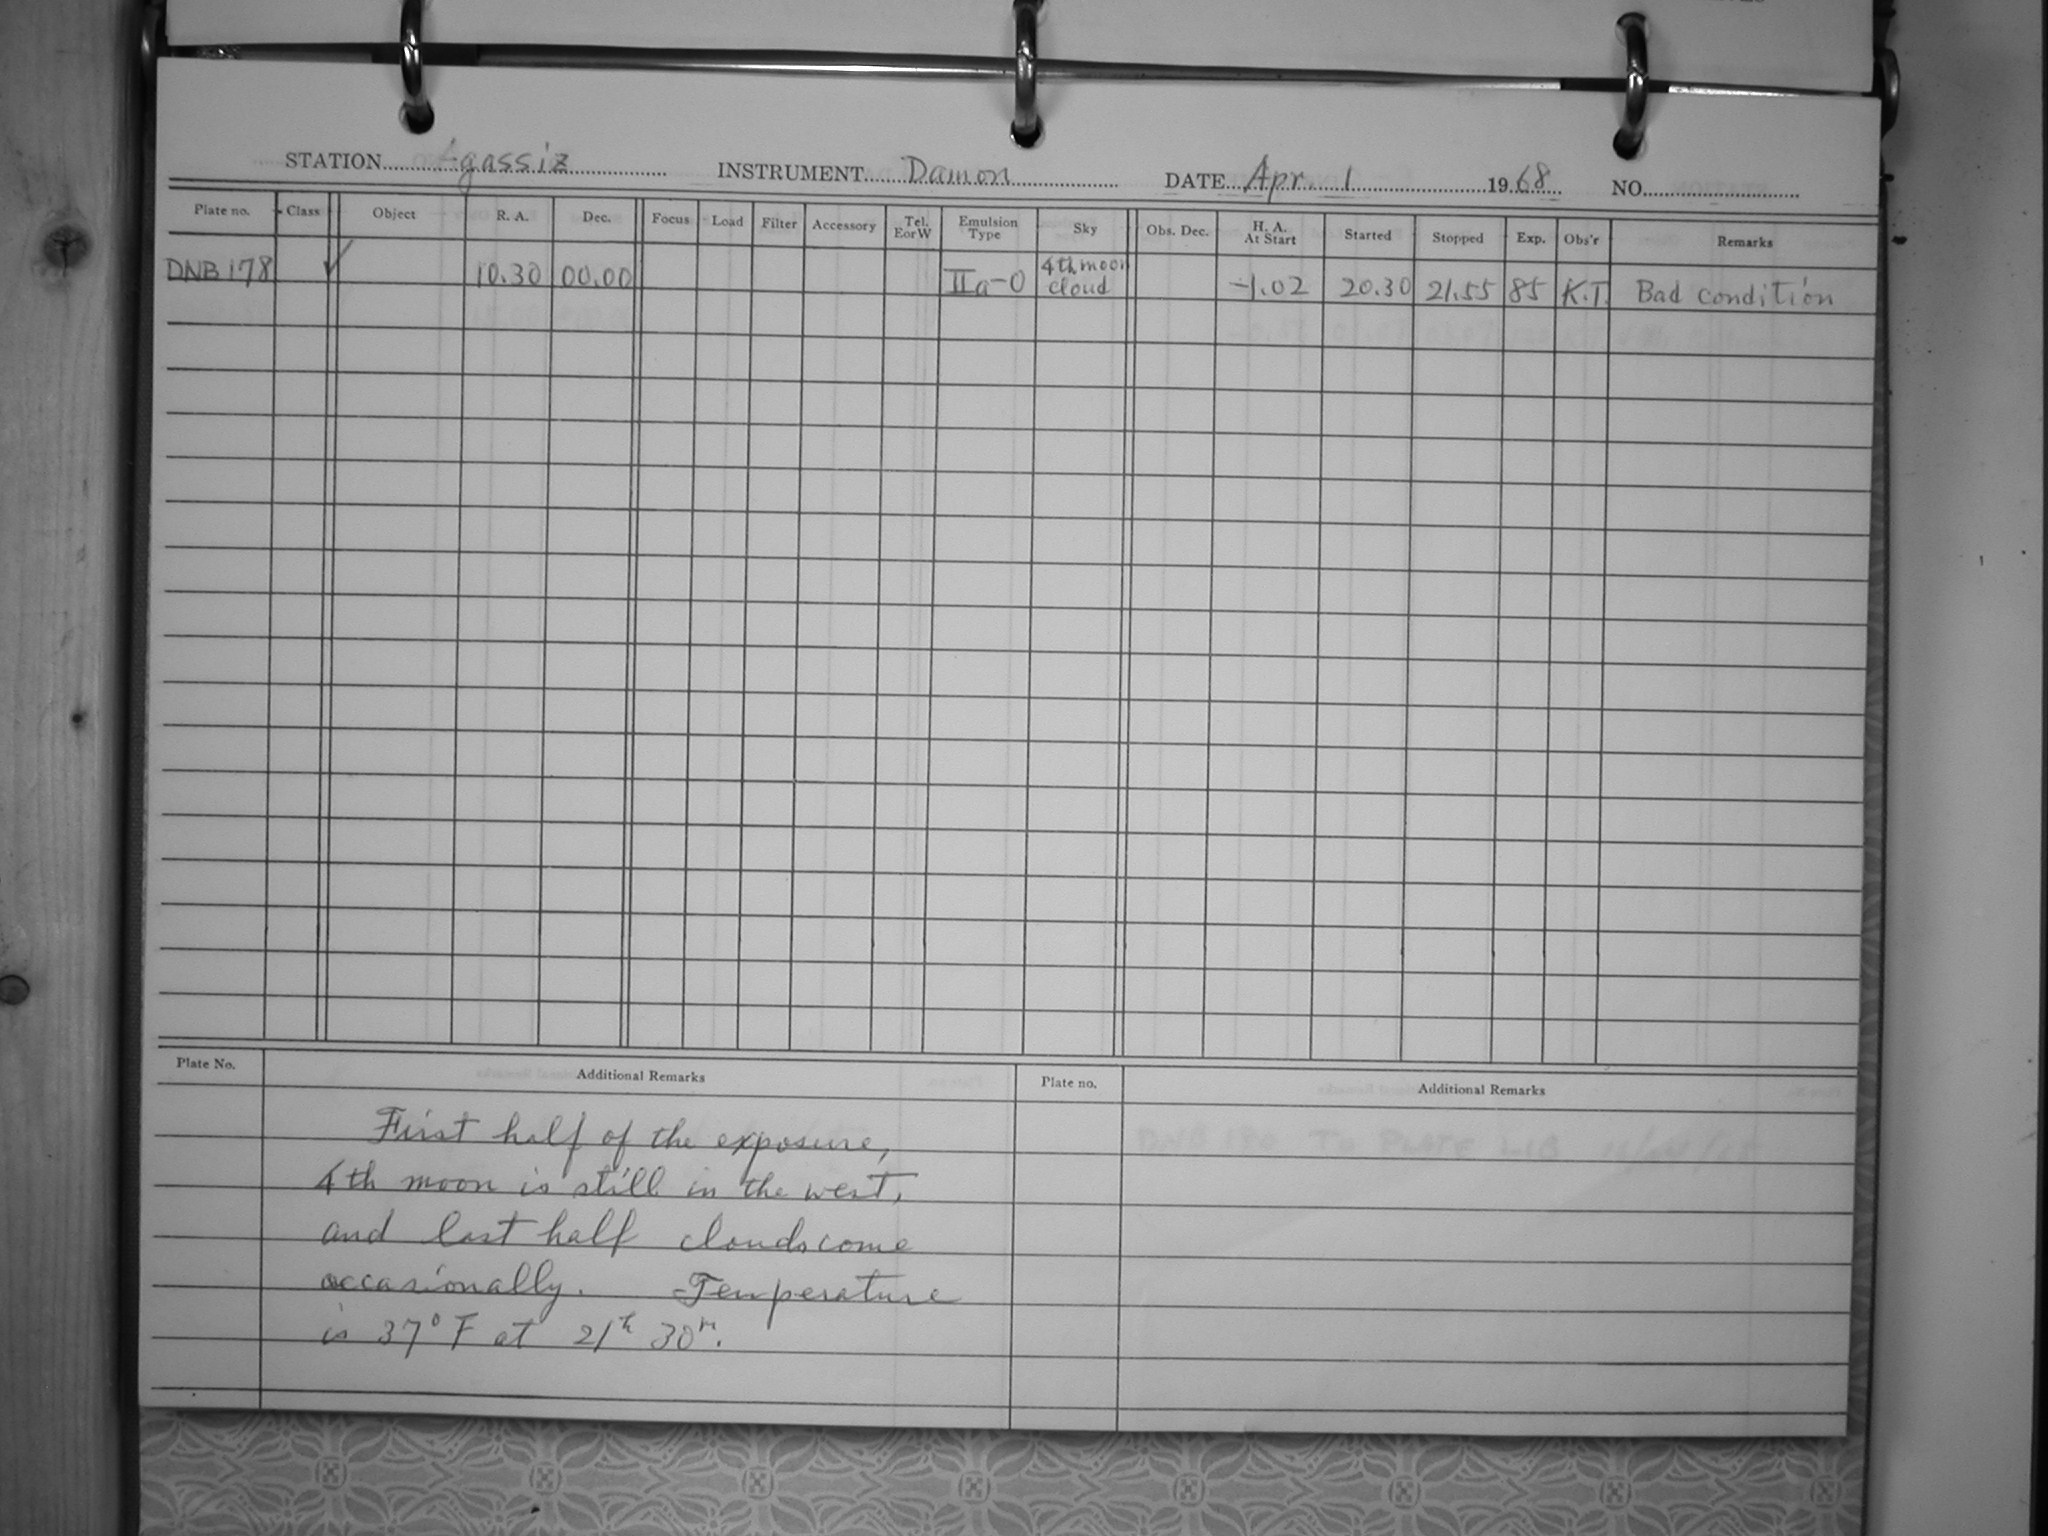 STATION Agassiz INSTRUMENT Damon DATE Apr. 1 1968 NO.
Plate no. Class Object R. A. Dec. Focus Load Filter Accessory Tel. E or W Emulsion Type Sky Obs. Dec. H. A. At Start Started Stopped Exp. Obs'r Remarks
DNB 178 ✓ 10.30 00.00 IIa-O 4th moon cloud -1.02 20.30 21.55 85 K.T. Bad condition
Plate No. Additional Remarks Plate no. Additional Remarks
First half of the exposure,
4th moon is still in the west,
and last half clouds come
occasionally. Temperature
is 37° F at 21h 30m.